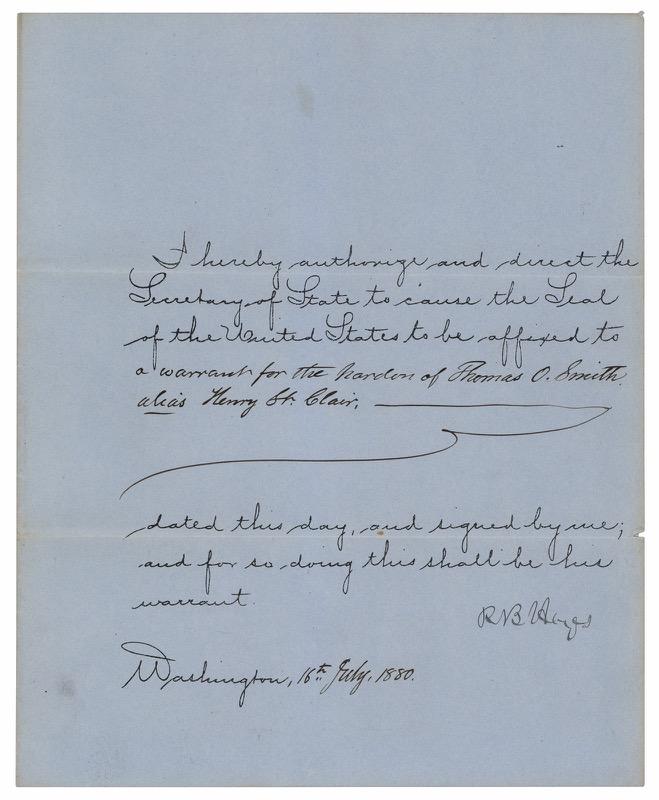 I hereby authorize and direct the
Secretary of State to cause the Seal
of the United States to be affixed to
a warrant for the pardon of Thomas O. Smith
alias Henry St. Clair,
dated this day, and signed by me;
and for so doing this shall be his
warrant.
R B Hayes
Washington, 16th July, 1880.